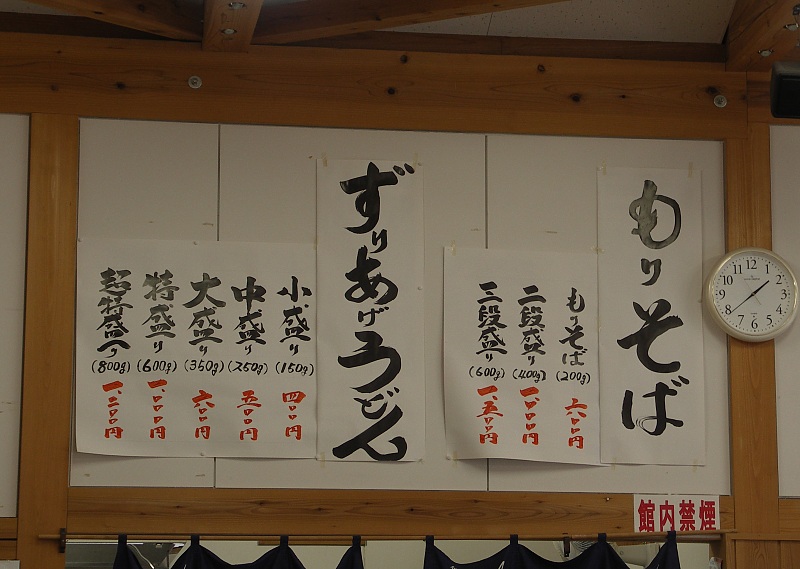 もりそば
もりそば
(200g)
六〇〇円
二段盛り
(400g)
一、〇〇〇円
三段盛り
(600g)
一、五〇〇円
ずりあげうどん
小盛り
(150g)
四〇〇円
中盛り
(250g)
五〇〇円
大盛り
(350g)
六〇〇円
特盛り
(600g)
一、〇〇〇円
超特盛り
(800g)
一、二〇〇円
12
1
2
3
4
5
6
7
8
9
10
11
館内禁煙